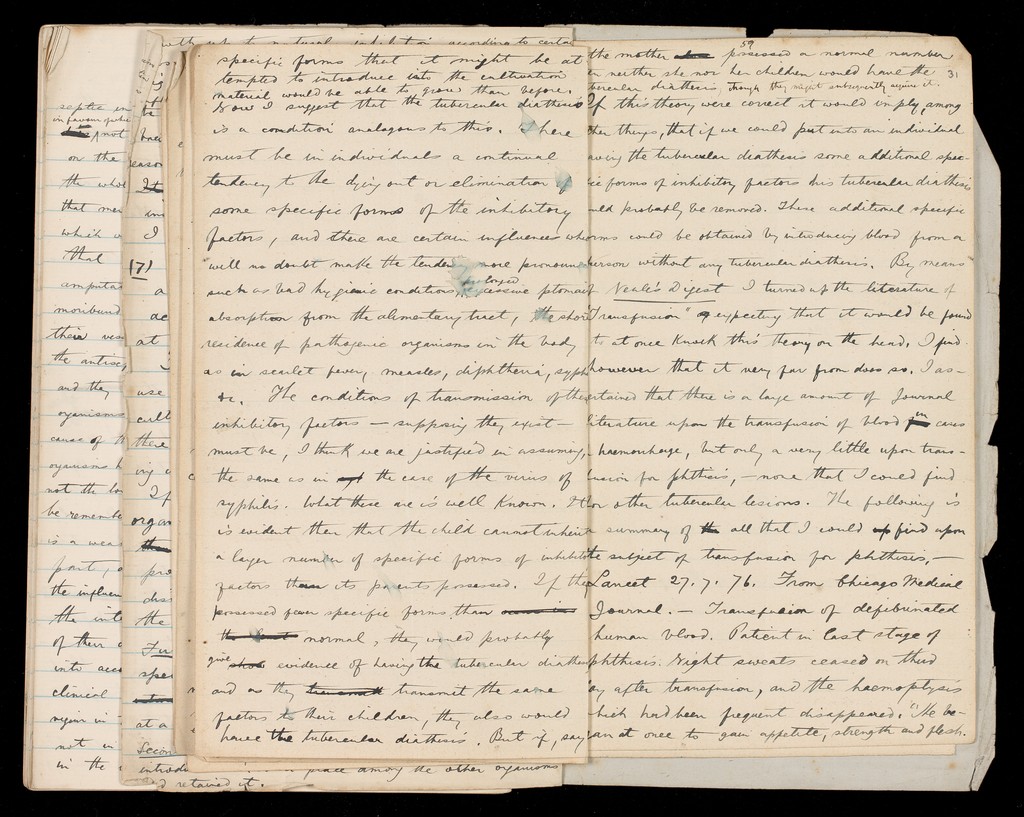 septic in
in favour of
not
on the
the whol
that mer
which w
that
amputa
moribund
their ves
the antisep
and they
organisms
cause of th
organisms h
not the lo
be remembe
is a wea
part, o
the influen
the inte
of their o
into acc
clinical
regim in
not in
in the
easo
I
(7)
a
ac
at
use
cult
there
ing a
If
organ
pro
dis
the
Fur
spec
at a
Secon
introdu
place among the other organisms
and retained it.
with natural inhibition according to certain
specific forms that it might be at
tempted to introduce into the cultivation
material would be able to grow than before.
Now I suggest that the tubercular diathesis
is a condition analogous to this. There
must be in individuals a continual
tendency to the dying out or elimination of
some specific forms of the inhibitory
factors, and there are certain influences who
will no doubt make the tenden more pronoun
such as bad hygienic conditions, excessive ptomai
prolonged
absorption from the alimentary tract, the shor
residence of pathogenic organisms in the body
as in scarlet fever, measles, diphtheria, syph
&c. The conditions of transmission of the
inhibitory factors — supposing they exist —
must be, I think we are justified in assuming,
the same as in the case of the virus of
syphilis. What these are is well known. It
is evident then that the child cannot inherit
a larger number of specific forms of inhibito
factors than its parents possessed. If the
possessed fewer specific forms than
normal, they would probably
give evidence of having the tubercular diathes
and as they transmit the same
factors to their children, they also would
have the tubercular diathesis. But if, say
59
31
the mother possessed a normal number
neither she nor her children would have the
tubercular diathesis, though they might subsequently acquire it.
If this theory were correct it would imply, among
other things, that if we could put into an individual
aving the tubercular diathesis some additional spec-
ic forms of inhibitory factors his tubercular diathesis
uld probably be removed. These additional specific
orms could be obtained by introducing blood from a
person without any tubercular diathesis. By means
of Neale's Digest I turned up the literature of
"Transfusion" expecting that it would be found
to at once knock this theory on the head. I find
however that it very far from does so. I as-
certained that there is a large amount of Journal
literature upon the transfusion of blood in cases
haemorrhage, but only a very little upon trans-
fusion for phthisis, — none that I could find
for other tubercular lesions. The following is
a summary of all that I could find upon
the subject of transfusion for phthisis, —
Lancet 27.7.76. From Chicago Medical
Journal. — Transfusion of defibrinated
human blood. Patient in last stage of
phthisis. Night sweats ceased on third
ay after transfusion, and the haemoptysis
hich had been frequent disappeared. "He be-
an at once to gain appetite, strength and flesh.